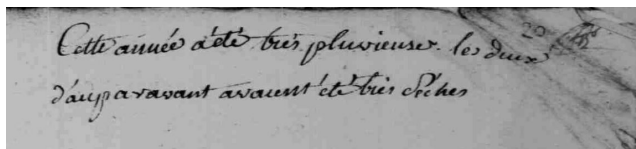 Cette année a été très pluvieuse. les deux
d'auparavant avaient été très sèches